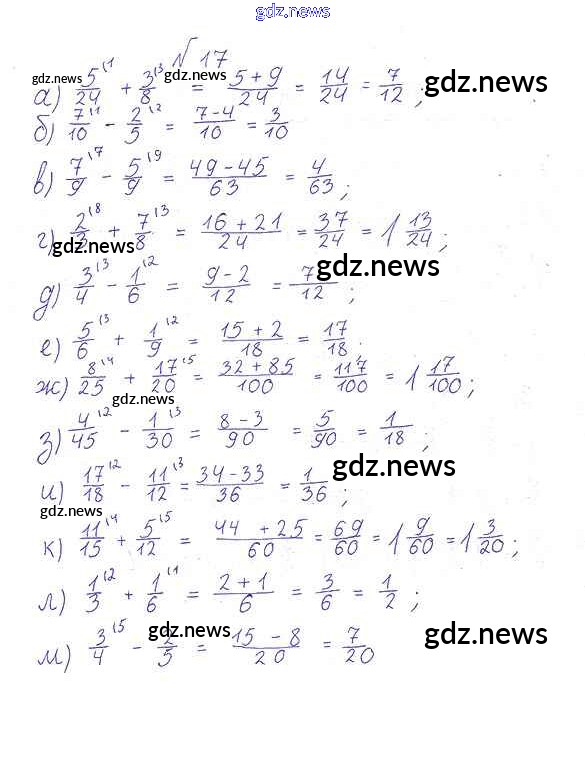 gdz.news
№ 17
gdz.news
а) 5/24 ⁽¹ + 3/8 ⁽³ = 5+9/24 = 14/24 = 7/12 ; gdz.news
б) 7/10 ⁽¹ - 2/5 ⁽² = 7-4/10 = 3/10
в) 7/9 ⁽⁷ - 5/9 ⁽⁹ = 49-45/63 = 4/63 ;
г) 2/3 ⁽⁸ + 7/8 ⁽³ = 16+21/24 = 37/24 = 1 13/24 ;
gdz.news
gdz.news
д) 3/4 ⁽³ - 1/6 ⁽² = 9-2/12 = 7/12 ;
е) 5/6 ⁽³ + 1/9 ⁽² = 15+2/18 = 17/18 .
gdz.news
ж) 8/25 ⁽⁴ + 17/20 ⁽⁵ = 32+85/100 = 117/100 = 1 17/100 ;
gdz.news
з) 4/45 ⁽² - 1/30 ⁽³ = 8-3/90 = 5/90 = 1/18 ;
и) 17/18 ⁽² - 11/12 ⁽³ = 34-33/36 = 1/36 ; gdz.news
gdz.news
к) 11/15 ⁽⁴ + 5/12 ⁽⁵ = 44+25/60 = 69/60 = 1 9/60 = 1 3/20 ;
л) 1/3 ⁽² + 1/6 ⁽¹ = 2+1/6 = 3/6 = 1/2 ;
gdz.news gdz.news
м) 3/4 ⁽⁵ - 2/5 = 15-8/20 = 7/20